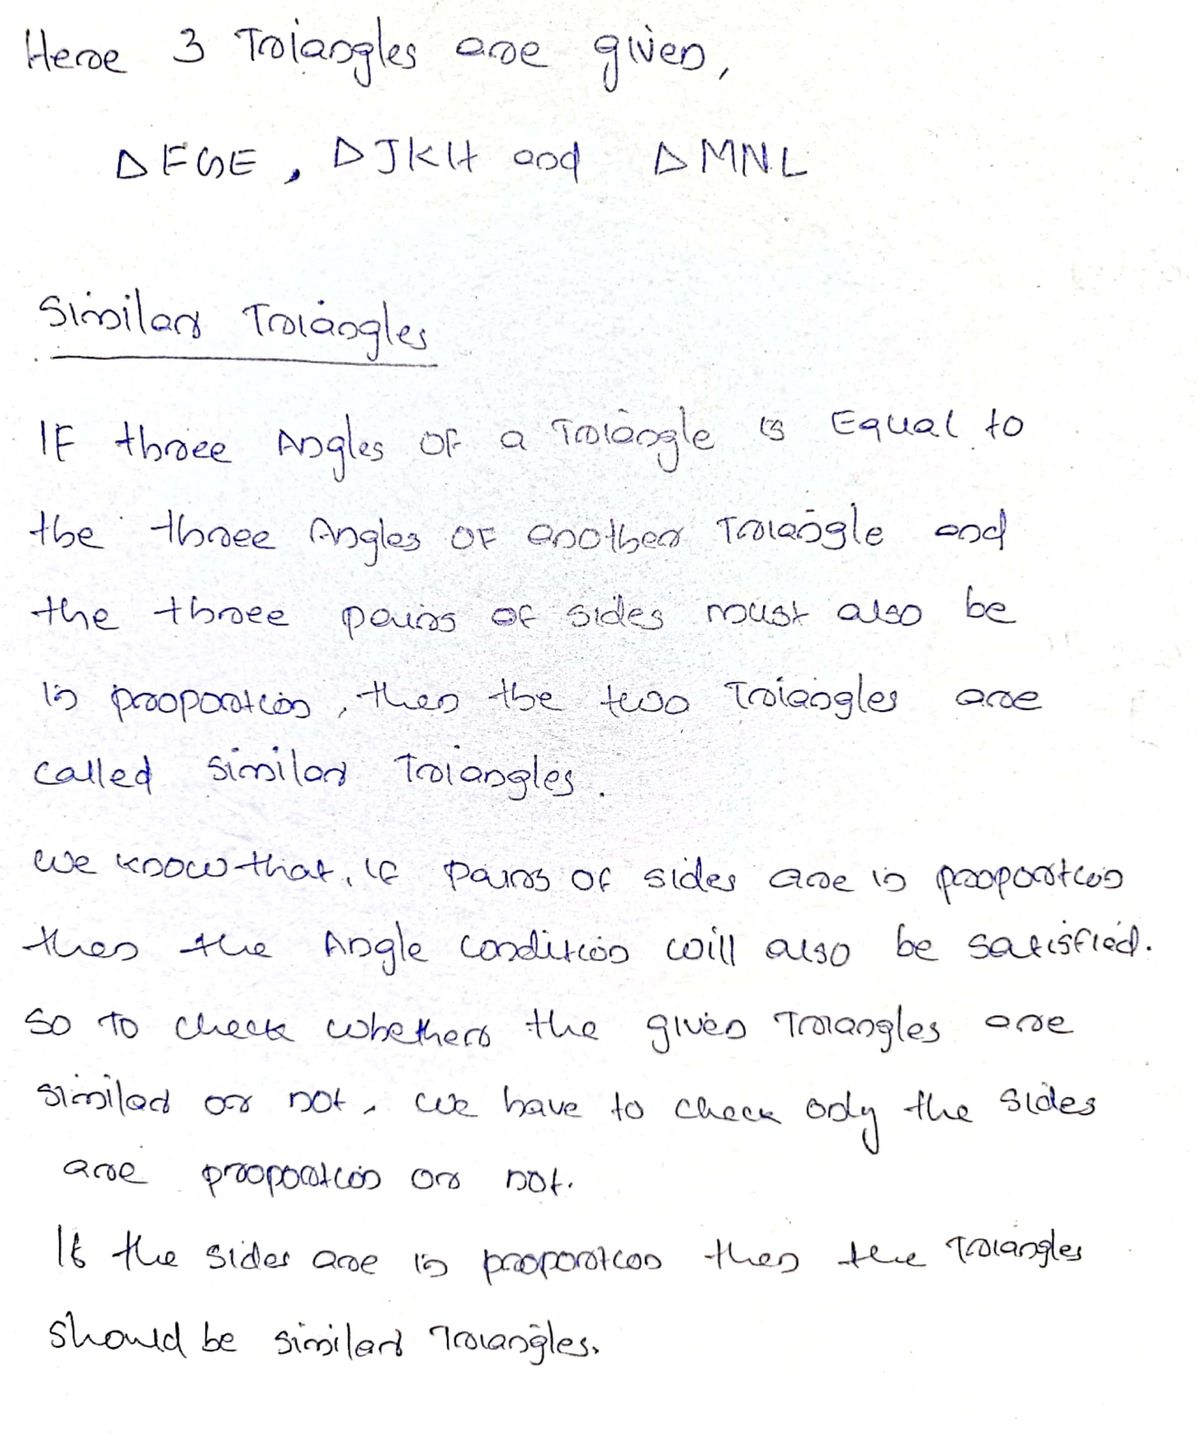 Here 3 Triangles are given,
Δ FGE, Δ JKH and Δ MNL
Similar Triangles
IF three Angles OF a Triangle is Equal to
the three Angles OF another Triangle and
the three pairs OF sides must also be
in proportion, then the two Triangles are
called similar Triangles.
we know that, if pairs OF sides are in proportion
then the Angle condition will also be satisfied.
so To check whether the given Triangles are
similar or not, we have to check only the sides
are proportion or not.
If the sides are in proportion then the Triangles
should be similar Triangles.